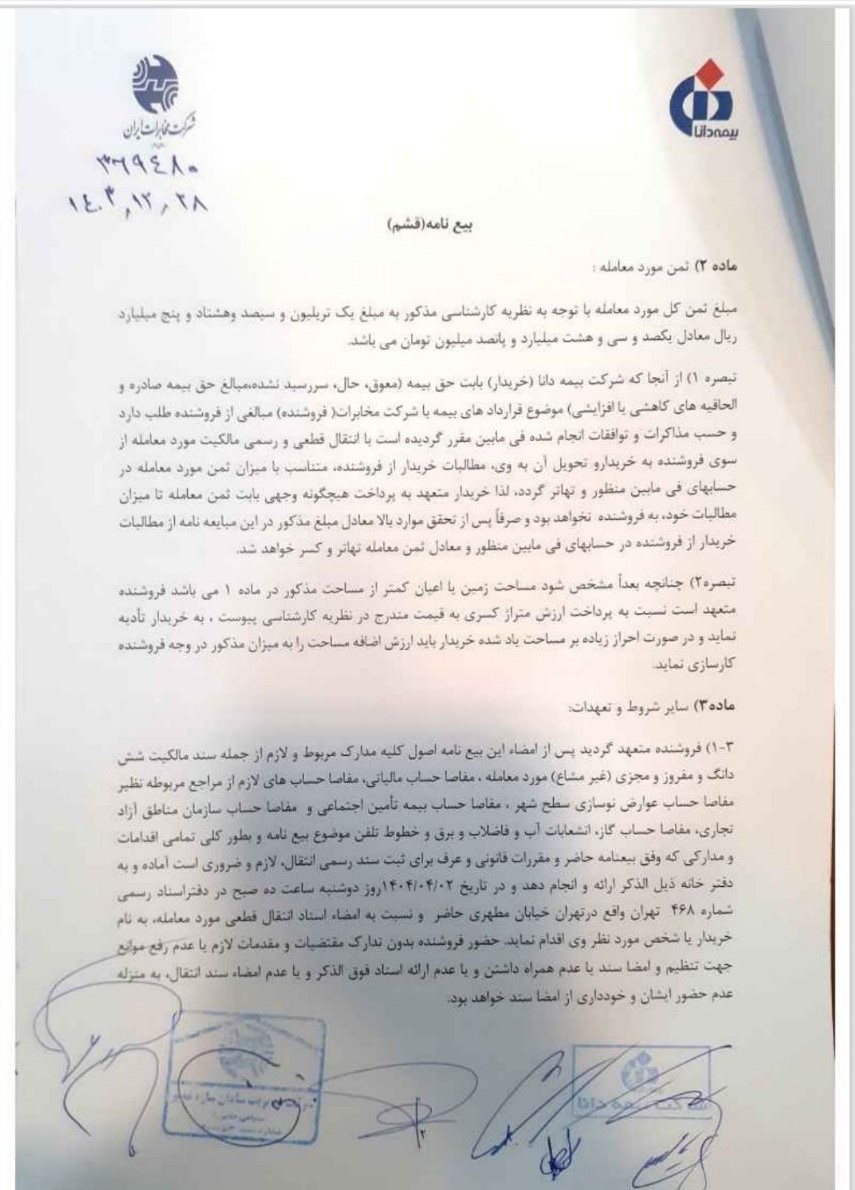 شرکت مخابرات ایران
بیمه دانا
۳۶۹۴۸۰
۱۴۰۳,۱۲,۲۸
بیع نامه(قشم)
ماده ۲) ثمن مورد معامله :
مبلغ ثمن کل مورد معامله با توجه به نظریه کارشناسی مذکور به مبلغ یک تریلیون و سیصد وهشتاد و پنج میلیارد
ریال معادل یکصد و سی و هشت میلیارد و پانصد میلیون تومان می باشد.
تبصره ۱) از آنجا که شرکت بیمه دانا (خریدار) بابت حق بیمه (معوق، حال، سررسید نشده،مبالغ حق بیمه صادره و
الحاقیه های کاهشی یا افزایشی) موضوع قرارداد های بیمه با شرکت مخابرات( فروشنده) مبالغی از فروشنده طلب دارد
و حسب مذاکرات و توافقات انجام شده فی مابین مقرر گردیده است با انتقال قطعی و رسمی مالکیت مورد معامله از
سوی فروشنده به خریدارو تحویل آن به وی، مطالبات خریدار از فروشنده، متناسب با میزان ثمن مورد معامله در
حسابهای فی مابین منظور و تهاتر گردد، لذا خریدار متعهد به پرداخت هیچگونه وجهی بابت ثمن معامله تا میزان
مطالبات خود، به فروشنده نخواهد بود و صرفاً پس از تحقق موارد بالا معادل مبلغ مذکور در این مبایعه نامه از مطالبات
خریدار از فروشنده در حسابهای فی مابین منظور و معادل ثمن معامله تهاتر و کسر خواهد شد.
تبصره۲) چنانچه بعداً مشخص شود مساحت زمین یا اعیان کمتر از مساحت مذکور در ماده ۱ می باشد فروشنده
متعهد است نسبت به پرداخت ارزش متراژ کسری به قیمت مندرج در نظریه کارشناسی پیوست ، به خریدار تأدیه
نماید و در صورت احراز زیاده بر مساحت یاد شده خریدار باید ارزش اضافه مساحت را به میزان مذکور در وجه فروشنده
کارسازی نماید.
ماده۳) سایر شروط و تعهدات:
۳-۱) فروشنده متعهد گردید پس از امضاء این بیع نامه اصول کلیه مدارک مربوط و لازم از جمله سند مالکیت شش
دانگ و مفروز و مجزی (غیر مشاع) مورد معامله ، مفاصا حساب مالیاتی، مفاصا حساب های لازم از مراجع مربوطه نظیر
مفاصا حساب عوارض نوسازی سطح شهر ، مفاصا حساب بیمه تأمین اجتماعی و مفاصا حساب سازمان مناطق آزاد
تجاری، مفاصا حساب گاز، انشعابات آب و فاضلاب و برق و خطوط تلفن موضوع بیع نامه و بطور کلی تمامی اقدامات
و مدارکی که وفق بیعنامه حاضر و مقررات قانونی و عرف برای ثبت سند رسمی انتقال، لازم و ضروری است آماده و به
دفتر خانه ذیل الذکر ارائه و انجام دهد و در تاریخ ۱۴۰۴/۰۴/۰۲روز دوشنبه ساعت ده صبح در دفتراسناد رسمی
شماره ۴۶۸ تهران واقع درتهران خیابان مطهری حاضر و نسبت به امضاء اسناد انتقال قطعی مورد معامله، به نام
خریدار یا شخص مورد نظر وی اقدام نماید. حضور فروشنده بدون تدارک مقتضیات و مقدمات لازم یا عدم رفع موانع
جهت تنظیم و امضا سند یا عدم همراه داشتن و یا عدم ارائه اسناد فوق الذکر و یا عدم امضاء سند انتقال، به منزله
عدم حضور ایشان و خودداری از امضا سند خواهد بود.
شرکت بیمه دانا
۲